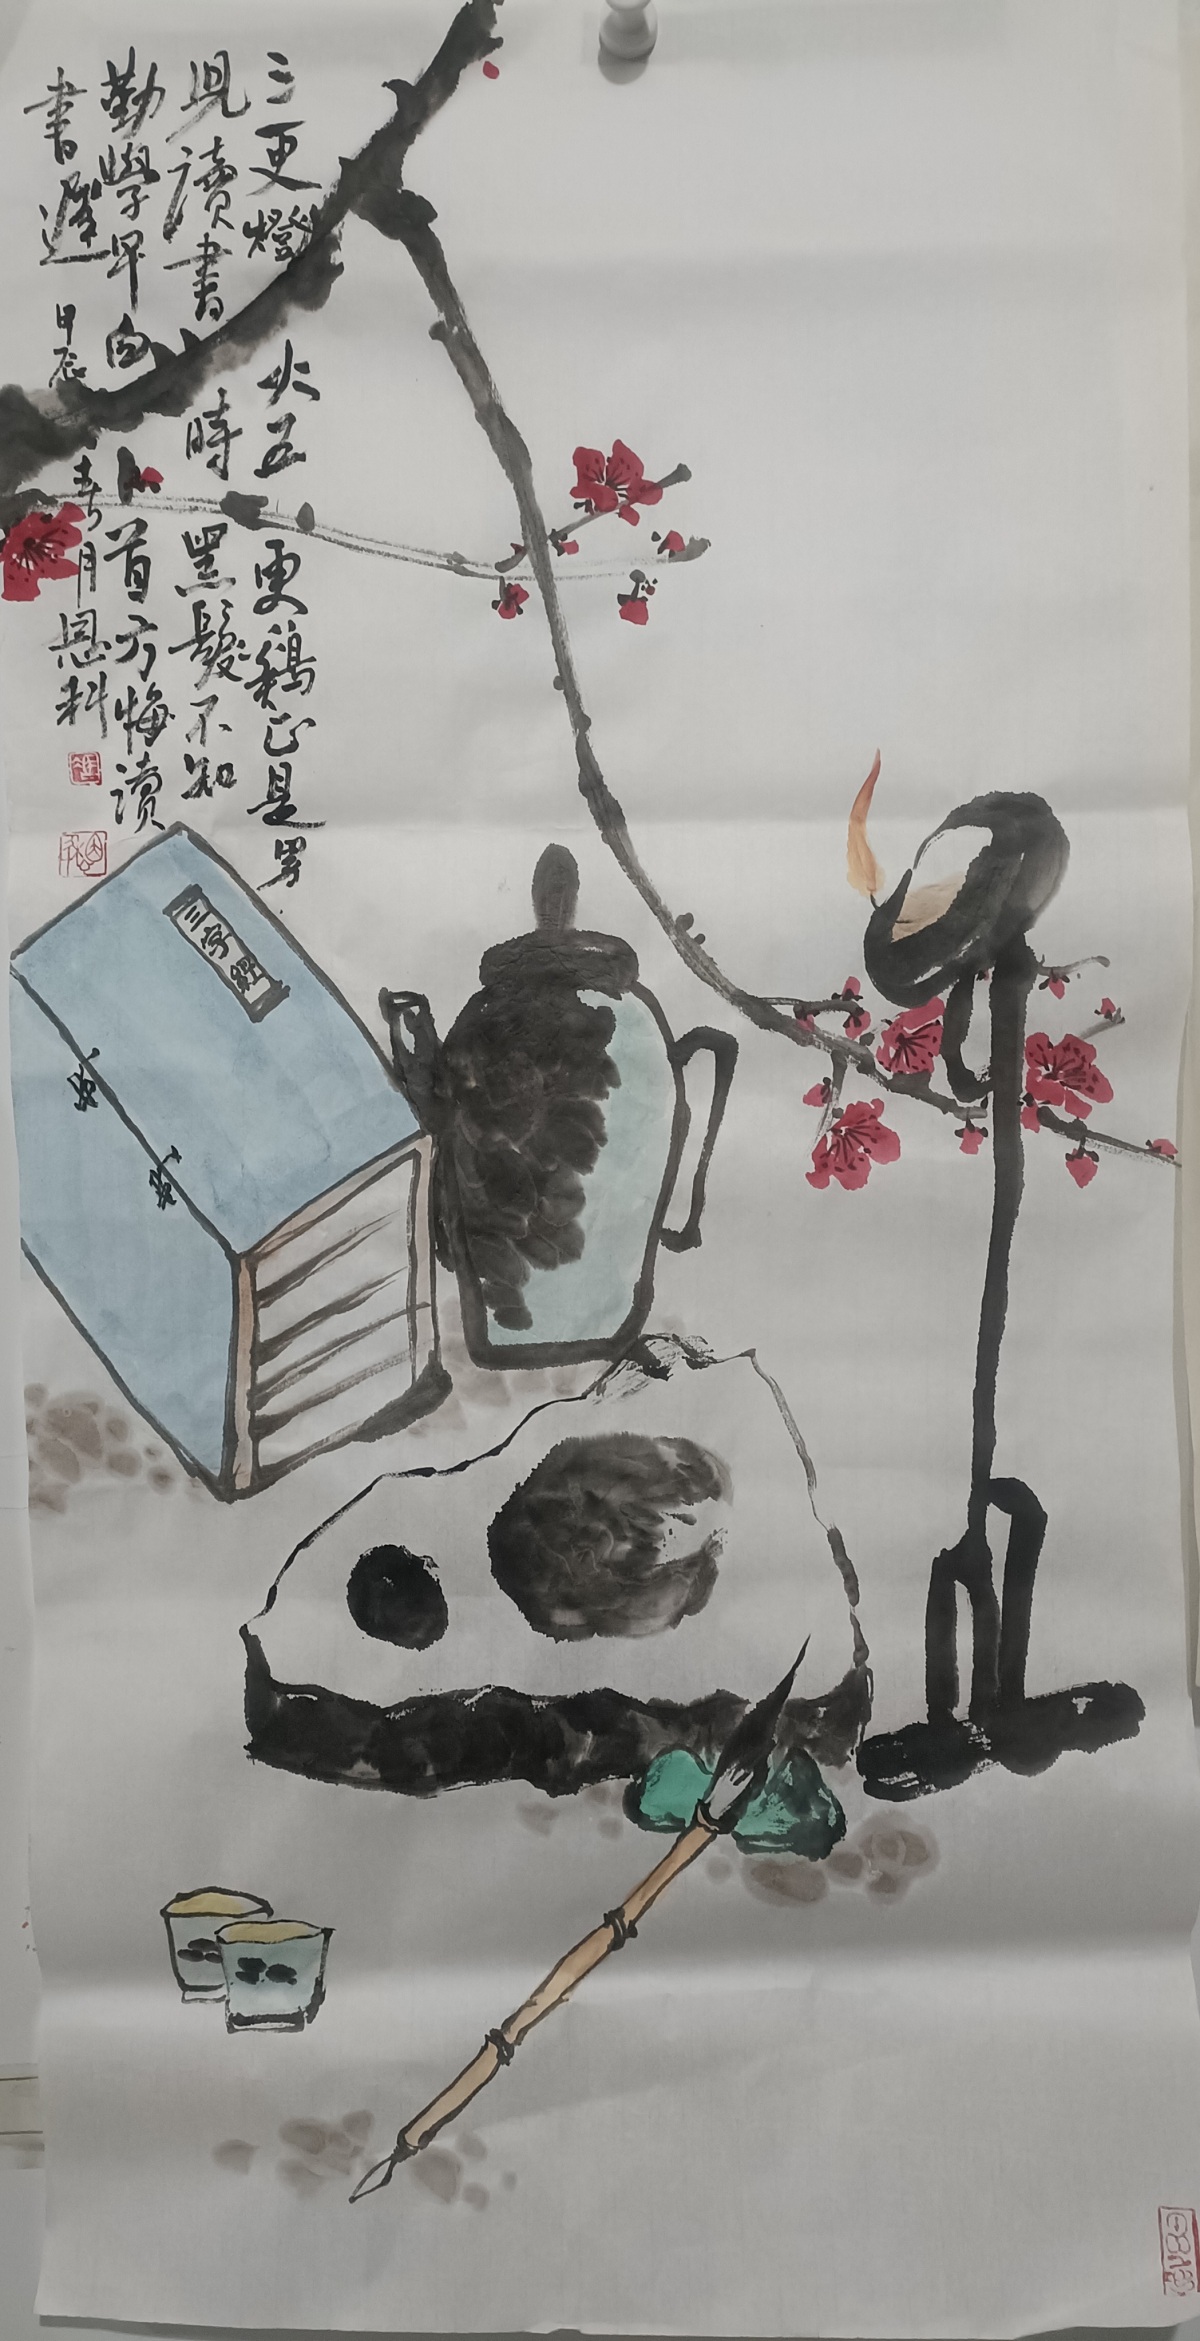 三更燈火五更鷄正是男
兒讀書時黑髮不知
勤學早白首方悔讀
書遲甲辰春月恩科
三字經